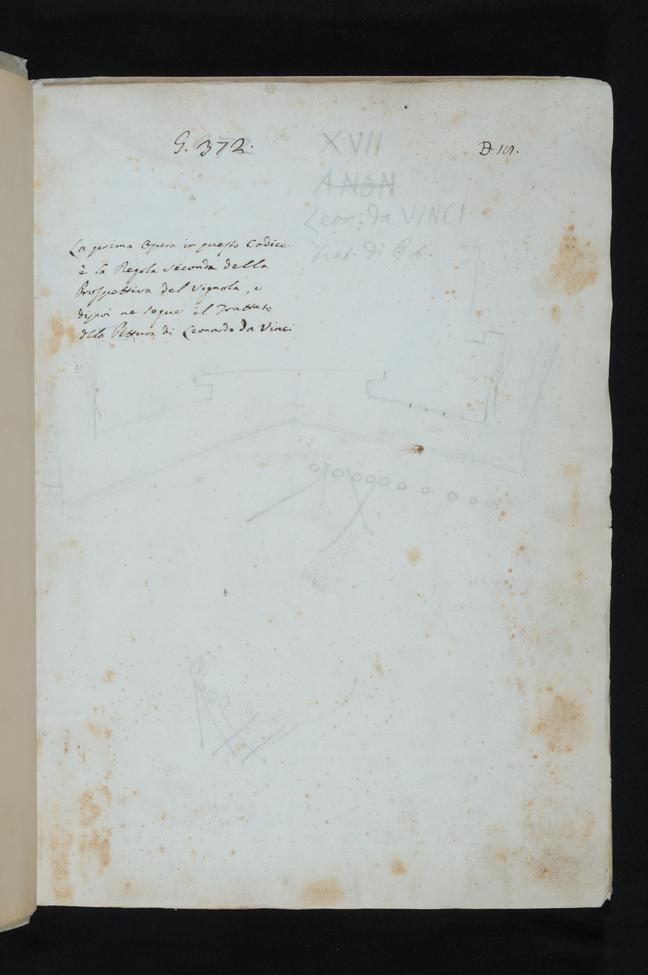 G. 372.
XVII
D 101.
ANON
Leon: da VINCI
Trat. di Pit.
La prima Opera in questo Codice
è la Regola seconda della
Prospettiva del Vignola, e
dipoi ne segue il Trattato
della Pittura di Leonardo da Vinci